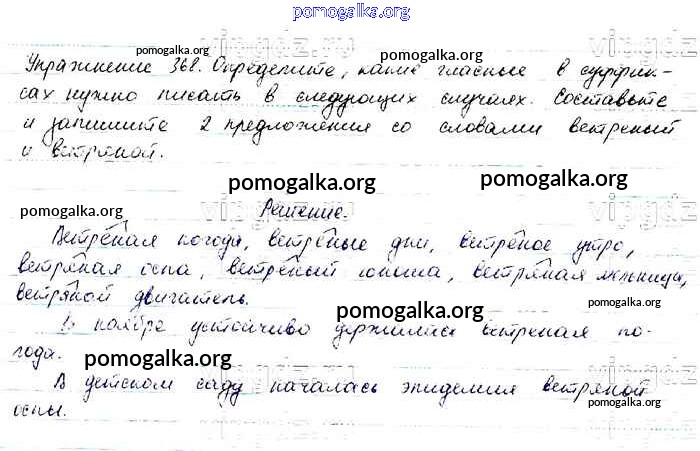 pomogalka.org
pomogalka.org pomogalka.org
Упражнение 368. Определите, какие гласные в суффик-
сах нужно писать в следующих случаях. Составьте
и запишите 2 предложения со словами ветреный
и ветряной.
pomogalka.org pomogalka.org
pomogalka.org
Решение.
Ветреная погода, ветреные дни, ветреное утро,
ветряная оспа, ветреный юноша, ветряная мельница,
ветряной двигатель.
pomogalka.org pomogalka.org
В ноябре устойчиво держится ветреная по-
года.
pomogalka.org
В детском саду началась эпидемия ветряной
оспы.
pomogalka.org
pomogalka.org